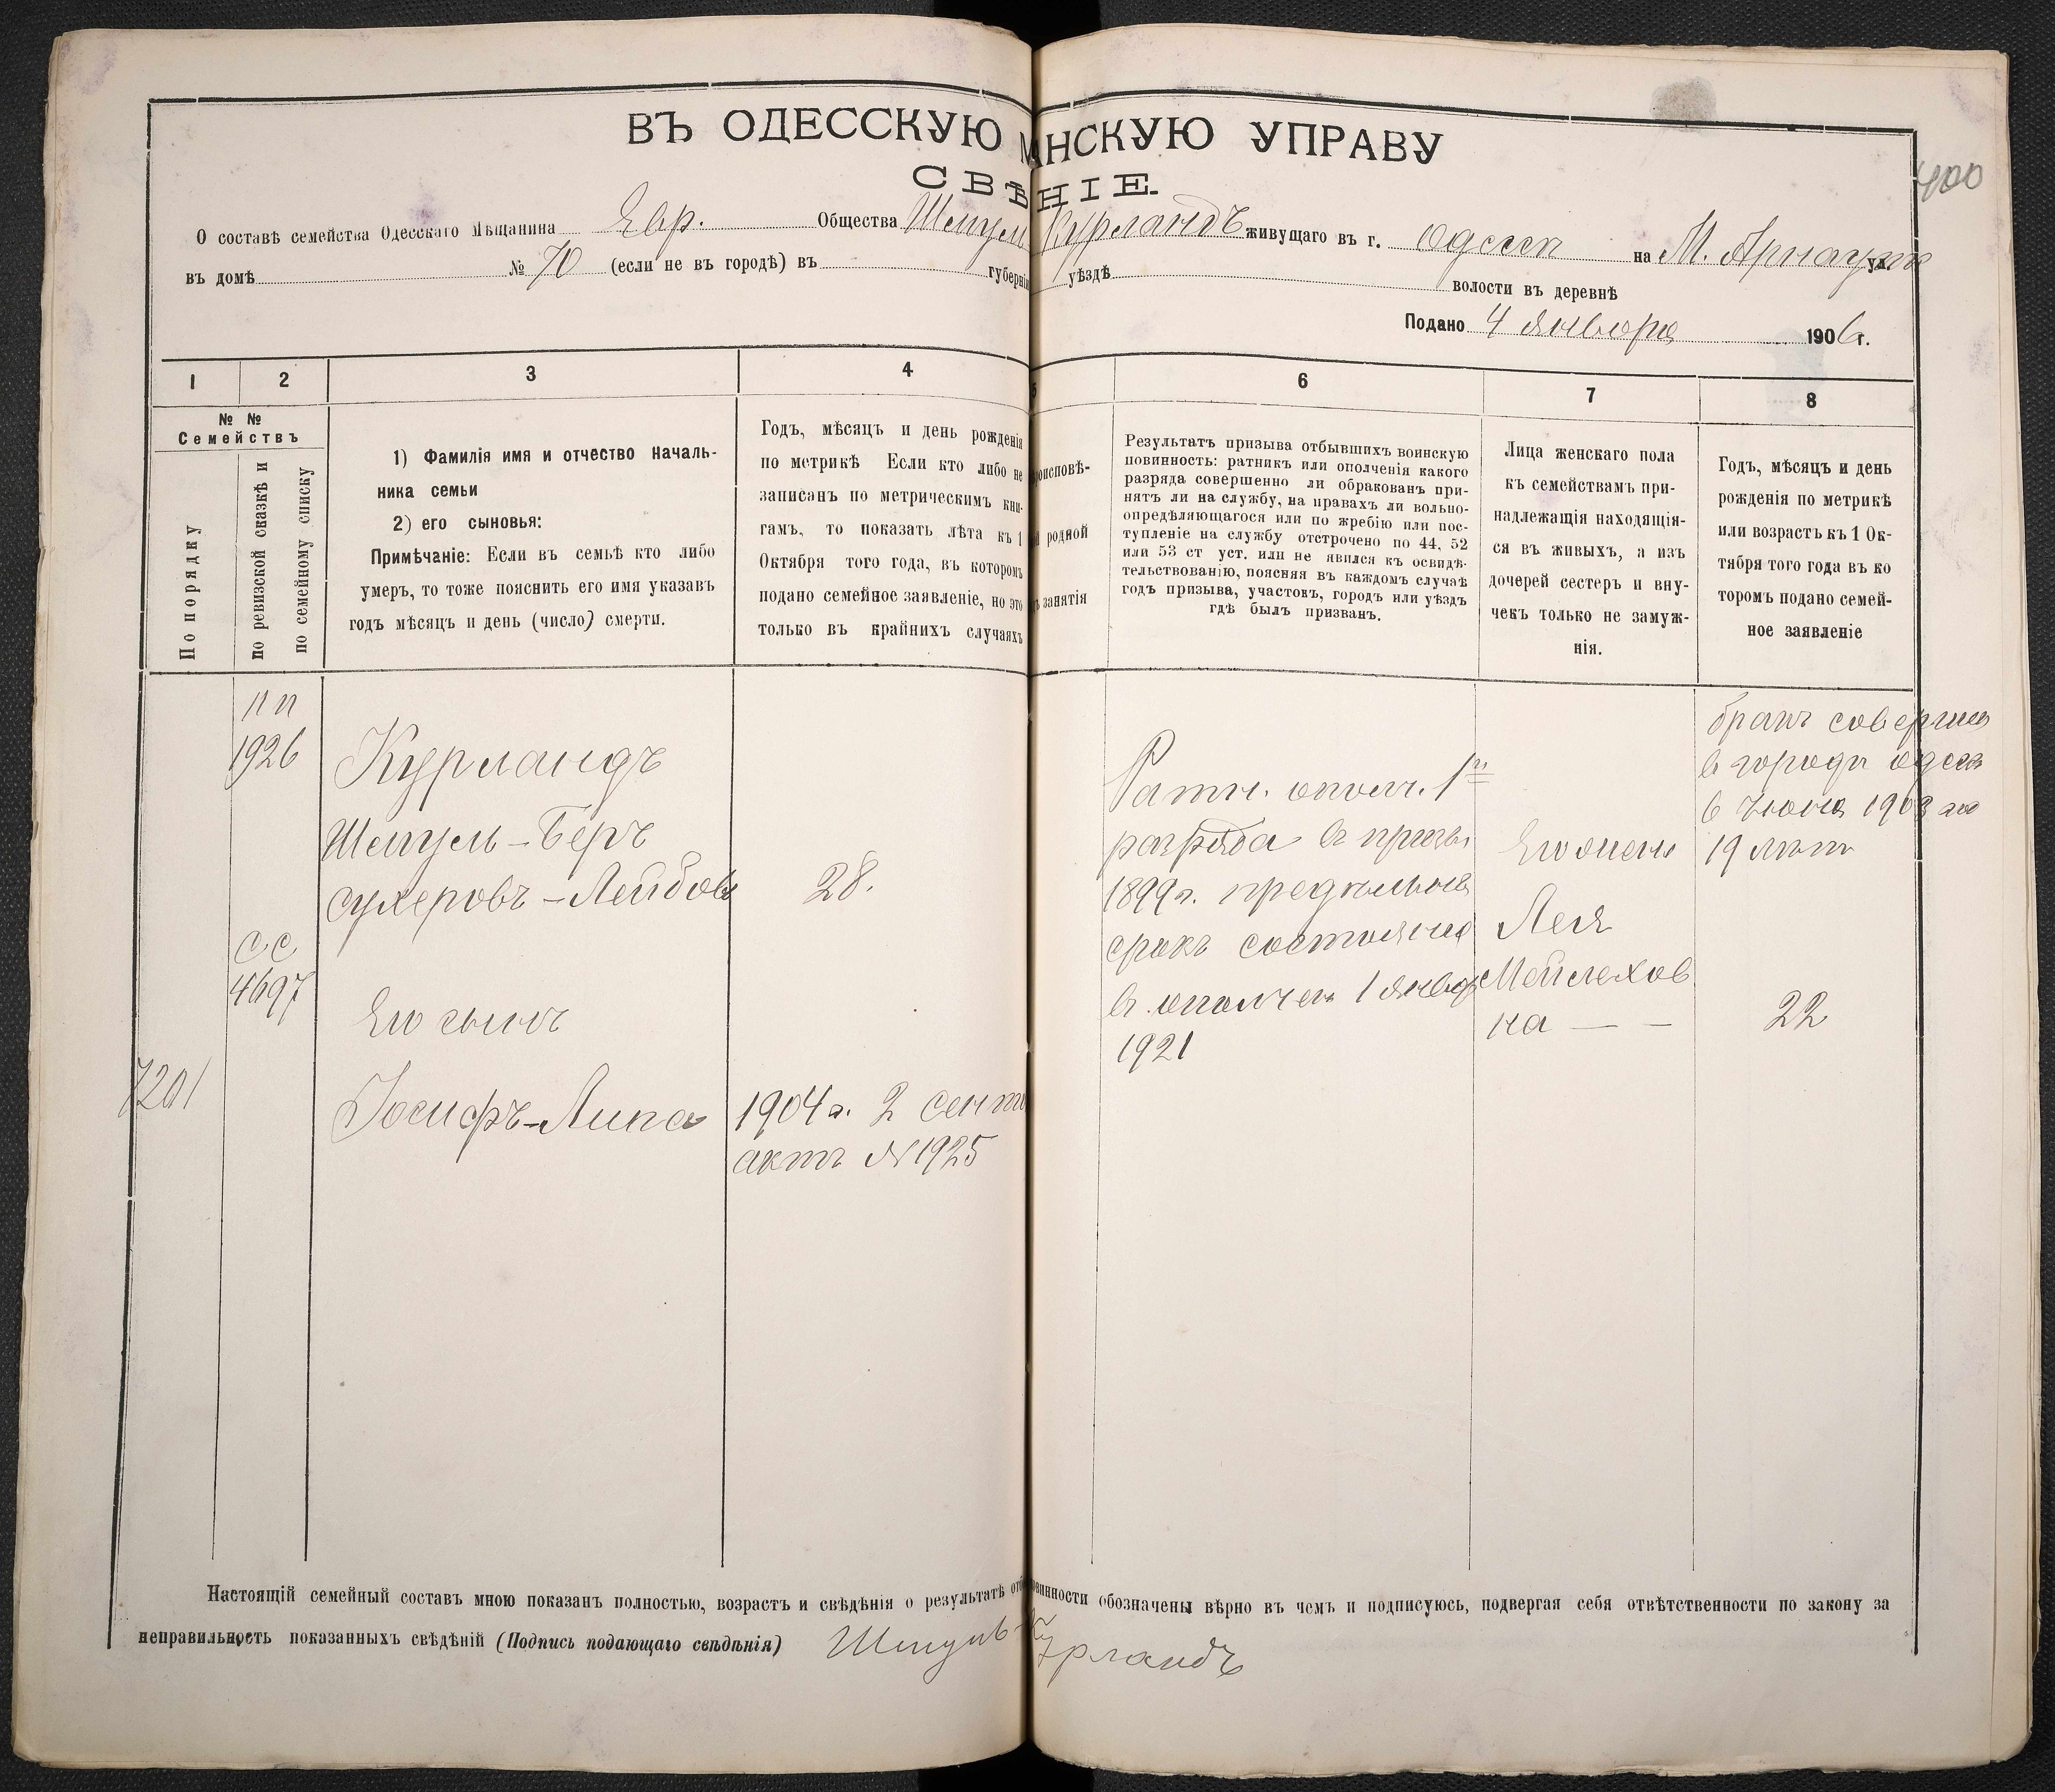 400
ВЪ ОДЕССКУЮ М НСКУЮ УПРАВУ
СВѢ НІЕ.
О составѣ семейства Одесскаго Мѣщанина Евр. Общества Шмуль Курландъ живущаго въ г. Одессѣ на М. Арнаутск ул.
въ домѣ № 70 (если не въ городѣ) въ губерніи уѣздѣ волости въ деревнѣ
Подано 4 Января 1906 г.
1 2 3 4 5 6 7 8
№ №
Семействъ
По порядку
по ревизской сказкѣ и
по семейному списку
1) Фамилія имя и отчество Началь-
ника семьи
2) его сыновья:
Примѣчаніе: Если въ семьѣ кто либо
умеръ, то тоже пояснить его имя указавъ
годъ мѣсяцъ и день (число) смерти.
Годъ, мѣсяцъ и день рожденія
по метрикѣ Если кто либо не
записанъ по метрическимъ кни-
гамъ, то показать лѣта къ 1
Октября того года, въ которомъ
подано семейное заявленіе, но это
только въ крайнихъ случаяхъ
роисповѣ-
родной
занятія
Результатъ призыва отбывшихъ воинскую
повинность: ратникъ или ополченія какого
разряда совершенно ли обракованъ при-
нятъ ли на службу, на правахъ ли вольно-
опредѣляющагося или по жребію или пос-
тупленіе на службу отстрочено по 44, 52
или 53 ст уст. или не явился къ освидѣ-
тельствованію, поясняя въ каждомъ случаѣ
годъ призыва, участокъ, городъ или уѣздъ
гдѣ былъ призванъ.
Лица женскаго пола
къ семействамъ при-
надлежащія находящія-
ся въ живыхъ, а изъ
дочерей сестеръ и вну-
чекъ только не замуж-
нія.
Годъ, мѣсяцъ и день
рожденія по метрикѣ
или возрастъ къ 1 Ок-
тября того года въ ко
торомъ подано семей-
ное заявленіе
пп
1926
Курландъ
Шмуль-Беръ
Сухеровъ-Лейбовъ
28.
сс
4697
Его сынъ
7201
Іосифъ-Липа
1904 г. 2 Сент
актъ №1925
Ратн. ополч. 1го
разряда в призы
1899 г.
срокъ состоянія
в ополчен 1 Янва
1921
Его жена
Лея
Мейлехов
на — —
бракъ соверше
в городѣ Одесс
6 Іюня 1903 го
19 лѣтъ
22
Настоящій семейный составъ мною показан полностью, возрастъ и свѣдѣнія о результатѣ отб овинности обозначены вѣрно въ чемъ и подписуюсь, подвергая себя отвѣтственности по закону за
неправильность показанныхъ свѣдѣній (Подпись подающаго свѣдѣнія) Шмуль Курландъ